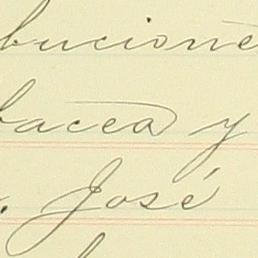 bucione
bacea y
. José